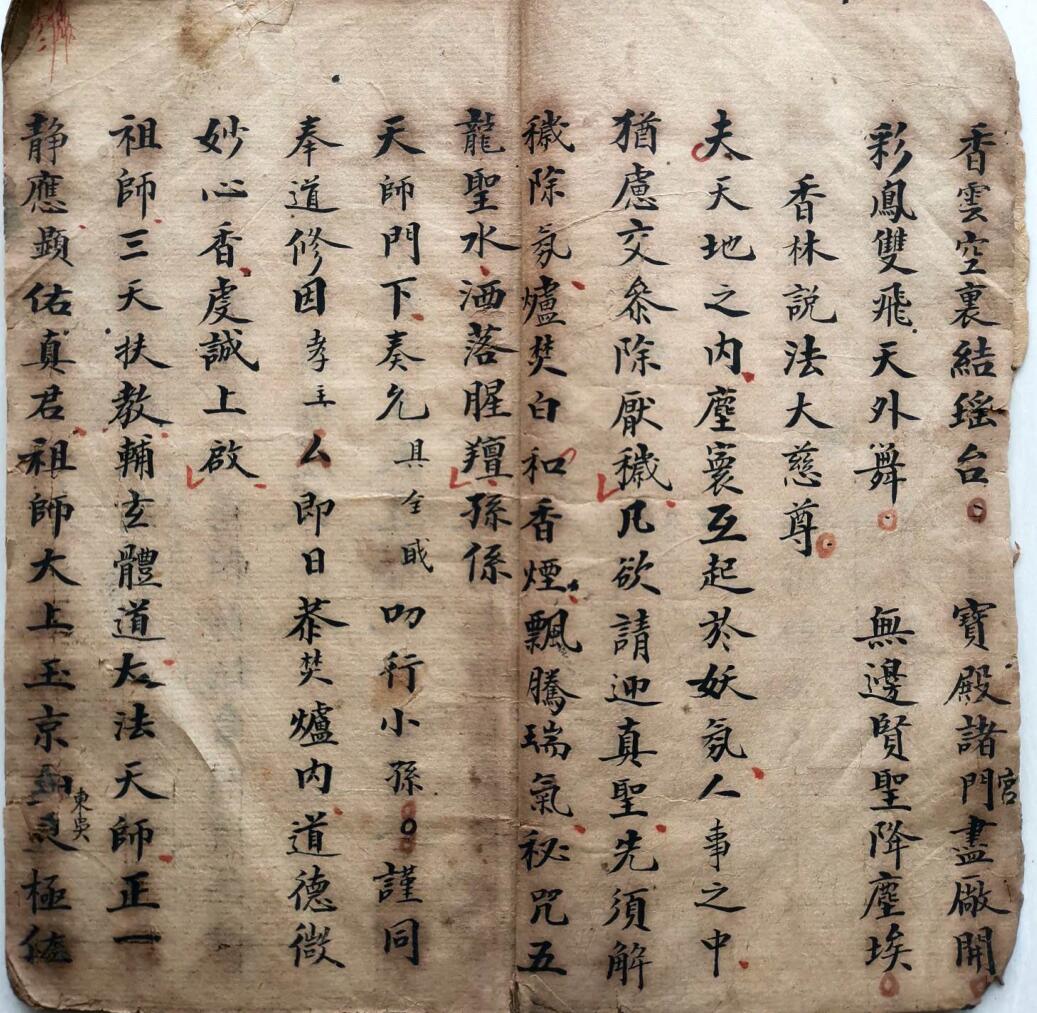 香雲空裏結瑶台 寶殿諸門盡廠開
宮
彩鳳雙飛天外舞 無邊賢聖降塵埃
香林説法大慈尊
夫天地之内塵寰互起於妖氛人事之中
猶慮交參除厭穢凡欲請迎真聖先須解
穢除氛爐焚白和香煙飄騰瑞氣秘咒五
龍聖水洒落腥羶孫係
天師門下奏允具全戝叨行小孫謹同
奉道修因孝主厶即日恭焚爐内道德微
妙心香虔誠上啟
祖師三天扶教輔玄體道大法天師正一
靜應顯佑真君祖師大上玉京極
東吳